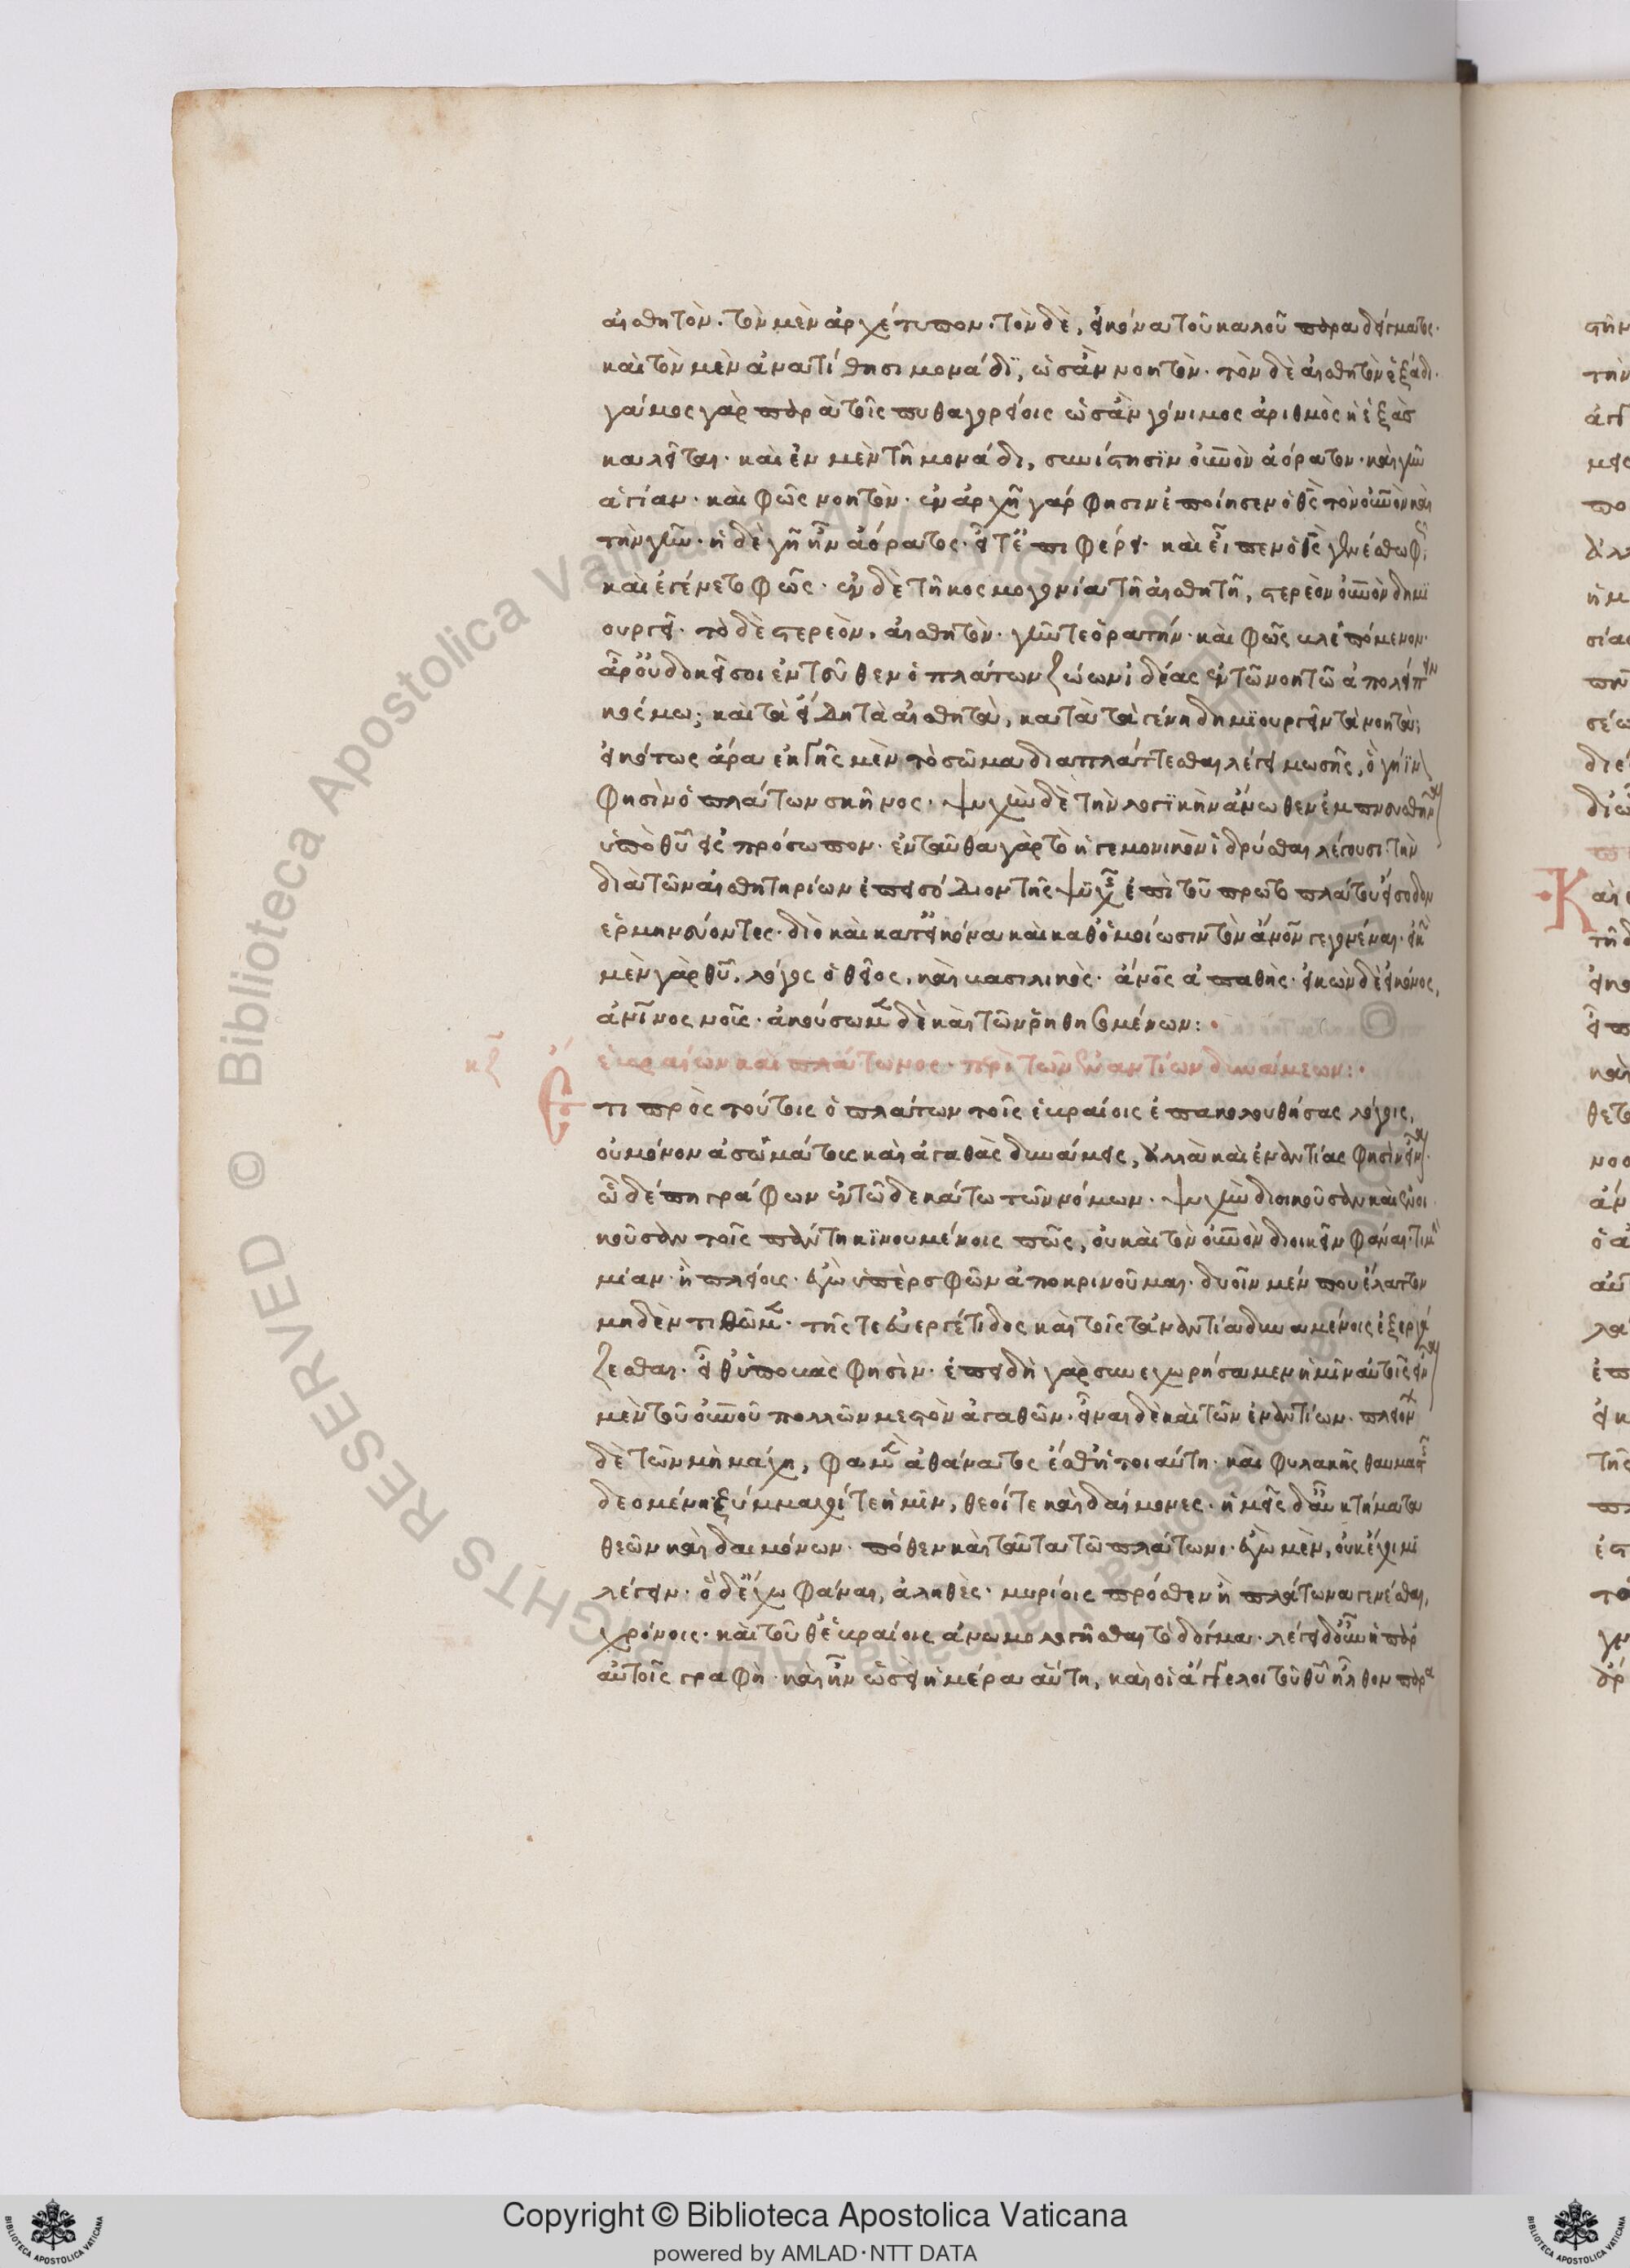 αἰσθητὸν· τὸν μὲν ἀρχέτυπον· τὸν δὲ, εἰκόνα τοῦ καλοῦ παραδείγματος·
καὶ τὸν μὲν ἀνατίθησι μονάδϊ, ὡσὰν νοητὸν· τὸν δὲ αἰσθητὸν ἑξάδι·
γάμος γὰρ παρὰ τοῖς πυθαγορείοις ὡσὰν γόνιμος ἀριθμὸς ἡ ἑξὰς
καλεῖται· καὶ ἐν μὲν τῆ μονάδι, συνίστησϊν οὐνὸν ἀόρατον· καὶ γῆν
ἁγίαν· καὶ φῶς νοητὸν· ἐν ἀρχῆ γάρ φησιν ἐποίησεν ὁ θς τὸν οὐνὸν καὶ
τὴν γῆν· ἡ δὲ γῆ ἦν ἀόρατος· εἶτ ἐπιφέρει· καὶ εἶπεν ὁ θς γενέσθω φῶς
καὶ ἐγένετο φῶς· ἐν δὲ τῆ κοσμογονία τῆ αἰσθητῆ, στερεὸν οὐνὸν δημϊ
ουργεῖ· τὸ δὲ στερεὸν, αἰσθητὸν· γῆν τε ὁρατήν· καὶ φῶς βλεπόμενον·
ἆρ οὐ δοκεῖ σοι ἐντεῦθεν ὁ πλάτων ζώων ἰδέας ἐν τῶ νοητῶ ἀπολείπειν
κόσμω; καὶ τὰ εἴδη τὰ αἰσθητὰ, κατὰ τὰ γένη δημϊουργεῖν τὰ νοητά;
εἰκότως ἄρα ἐκ γῆς μὲν τὸ σῶμα διαπλάττεσθαι λέγει μωσῆς, ὃ γήϊν
φησὶν ὁ πλάτων σκῆνος· ψυχὴν δὲ τὴν λογϊκὴν ἄνωθεν ἐμπνευσθῆναι
ὑπὸ θῦ εἰς πρόσωπον· ἐνταῦθα γὰρ τὸ ἡγεμονικὸν ἱδρύσθαι λέγουσι· τὴν
διὰ τῶν αἰσθητηρίων ἐπεισόδιον τῆς ψϋχῆς ἐπὶ τοῦ πρωτοπλάστου εἴσοδον
ἑρμηνεύοντες· διὸ καὶ κατ εἰκόνα καὶ καθ ὁμοίωσιν τὸν ἄνον γεγονέναι· εἰκὼν
μὲν γὰρ θῦ, λόγος ὁ θεῖος, καὶ βασιλικὸς· ἄνος ἀπαθὴς· εἰκὼν δ εἰκόνος,
ἀνινος νοῦς· ἀκούσωμεν δὲ καὶ τῶν ῥηθησομένων:·
κζ ἑβραίων καὶ πλάτωνος· περὶ τῶν ἐναντίων δυνάμεων:·
Ἔτι πρὸς τούτοις ὁ πλάτων τοῖς ἑβραίοις ἐπακολουθήσας λόγοις,
οὐ μόνον ἀσωμάτους καὶ ἀγαθὰς δυνάμεις, ἀλλὰ καὶ ἐναντίας φησὶν εἶναι·
ὧδέ πη γράφων ἐν τῶ δεκάτω τῶν νόμων· ψυχὴν διοικοῦσαν καὶ ἐνοι
κοῦσαν τοῖς πάντη κϊνουμένοις πῶς, οὐ καὶ τὸν οὐνὸν διοικεῖν φάναι· τί μὴν
μίαν· ἢ πλείοις· ἐγὼ ὑπὲρ σφῶν ἀποκρινοῦμαι· δυοῖν μέν που ἔλαττον
μηδὲν τιθῶμεν· τῆς τε εὐεργέτιδος καὶ τῆς τἀναντία δυναμένοις ἐξεργά
ζεσθαι· εἶθ ὑποβάς φησὶν· ἐπειδὴ γὰρ συνεχωρήσαμεν ἡμῖν αὐτοῖς εἶναι
μὲν τοῦ οὐνοῦ πολλῶν μεστὸν ἀγαθῶν· εἶναι δὲ καὶ τῶν ἐναντίων· πλειόνων
δὲ τῶν μὴ μάχη, φαμὲν ἀθάνατος ἐσθ ἡ τοιαύτη· καὶ φυλακῆς θαυμαστῆς
δεομένη· ξύμμαχοί τε ἡμῖν, θεοί τε καὶ δαίμονες· ἡμεῖς δ αὖ κτήματα
θεῶν καὶ δαιμόνων· πόθεν καὶ ταῦτα τῶ πλάτωνι· ἐγὼ μὲν, οὐκ ἔχοιμι
λέγειν· ὃ δ ἔχω φάναι, ἀληθὲς· μυρίοις πρόσθεν ἢ πλάτωνα γενέσθαι,
χρόνοις· καὶ τοῦθ ἑβραίοις ἀνωμολογῆσθαι τὸ δόγμα· λέγει δ οὖν ἡ παρ
αὐτοῖς γραφὴ· καὶ ἦν ὡσεὶ ἡμέρα αὕτη, καὶ οἱ ἄγγελοι τοῦ θῦ ἦλθον παρα